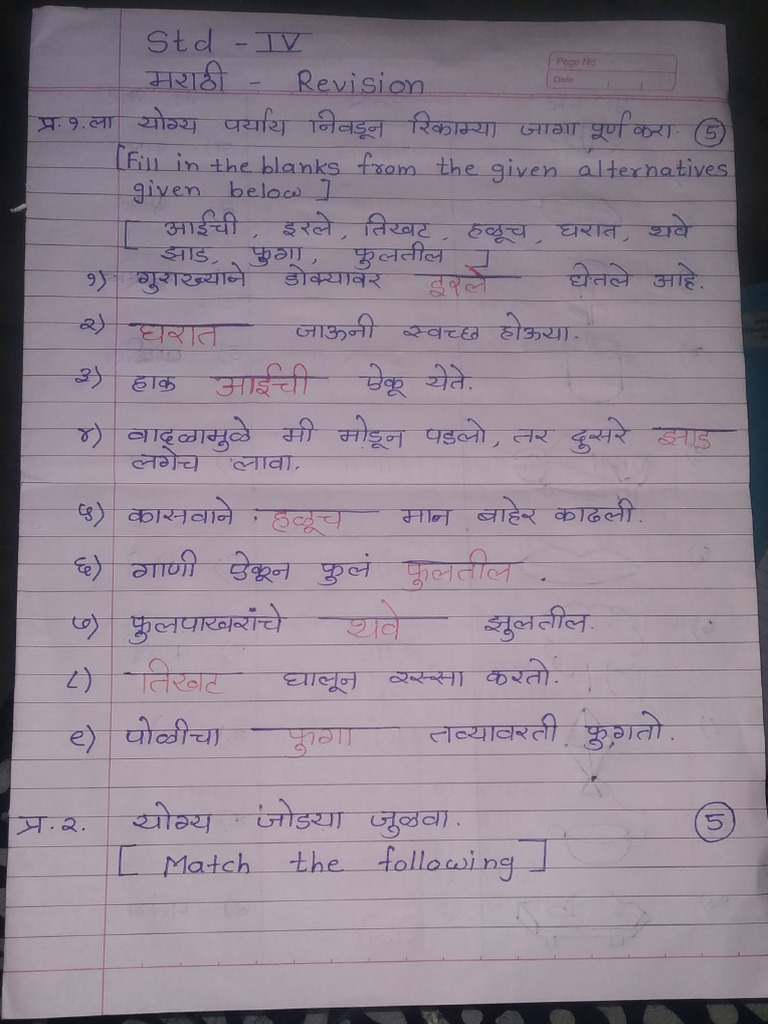 Std - IV
मराठी - Revision
Page No
Date
प्र.१.ला योग्य पर्याय निवडून रिकाम्या जागा पूर्ण करा. ५
[Fill in the blanks from the given alternatives
given below]
[आईची, इरले, तिखट, हळूच, घरात, थवे
झाड, फुगा, फुलतील]
१) गुराख्याने डोक्यावर इरले घेतले आहे.
२) घरात जाऊनी स्वच्छ होऊया.
३) हाक आईची ऐकू येते.
४) वादळामुळे मी मोडून पडलो, तर दुसरे झाड
लगेच लावा.
५) कासवाने हळूच मान बाहेर काढली.
६) गाणी ऐकून फुलं फुलतील.
७) फुलपाखरांचे थवे झुलतील.
८) तिखट घालून रस्सा करतो.
९) पोळीचा फुगा तव्यावरती फुगतो.
प्र.२. योग्य जोड्या जुळवा. ५
[Match the following]